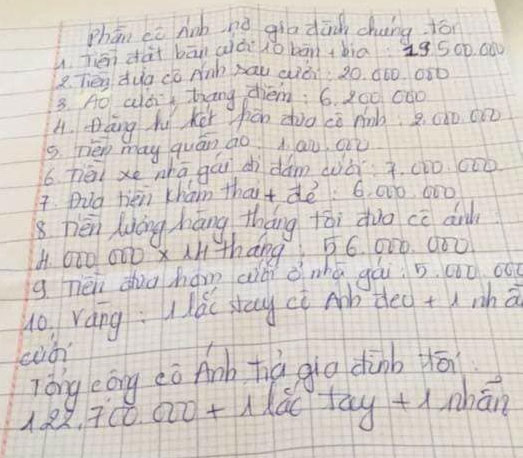 Phần cô Ánh nợ gia đình chúng tôi
1. Tiền đặt bàn cưới 10 bàn + bia : 19 500.000
2. Tiền đưa cô Ánh sau cưới : 20.000.000
3. Áo cưới + trang điểm : 6.200.000
4. Đăng ký kết hôn đưa cô Ánh : 2.000.000
5. Tiền may quần áo 1.000.000
6. Tiền xe nhà gái đi đám cưới : 7.000.000
7. Đưa tiền khám thai + đẻ : 6.000.000
8 Tiền lương hàng tháng tôi đưa cô ánh
4.000 000 x 14 tháng : 56.000.000
9. Tiền đưa hôm cưới ở nhà gái : 5.000.000
10. Vàng : 1 lắc tay cô Ánh đeo + 1 nhẫ
cưới
Tổng cộng cô Ánh trả gia đình tôi
122.700.000 + 1 lắc tay + 1 nhẫn